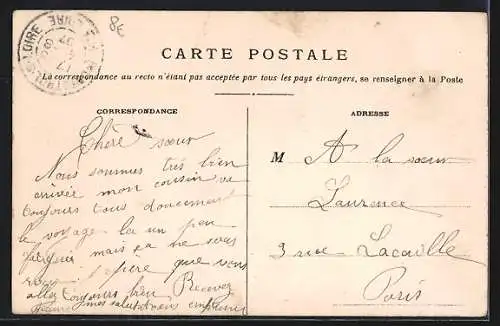 8€
LOIRE
CARTE POSTALE
La correspondance au recto n'étant pas acceptée par tous les pays étrangers, se renseigner à la Poste
CORRESPONDANCE
ADRESSE
Chère sœur
Nous sommes très bien
arrivée mon cousin va
toujours tous doucement
le voyage la un peu
fatigué mais ça ne sera
rien j'espère que vous
allez toujours bien Recevez
mes salutations
M A la sœur
Laurence
3 rue Lacaille
Paris